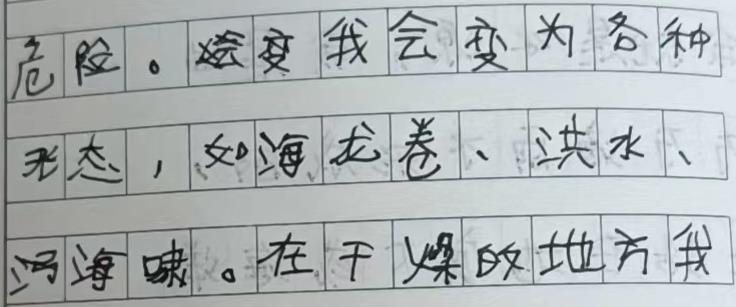 危险。变我会变为各种
形态,如海龙卷、洪水、
海啸。在干燥的地方我